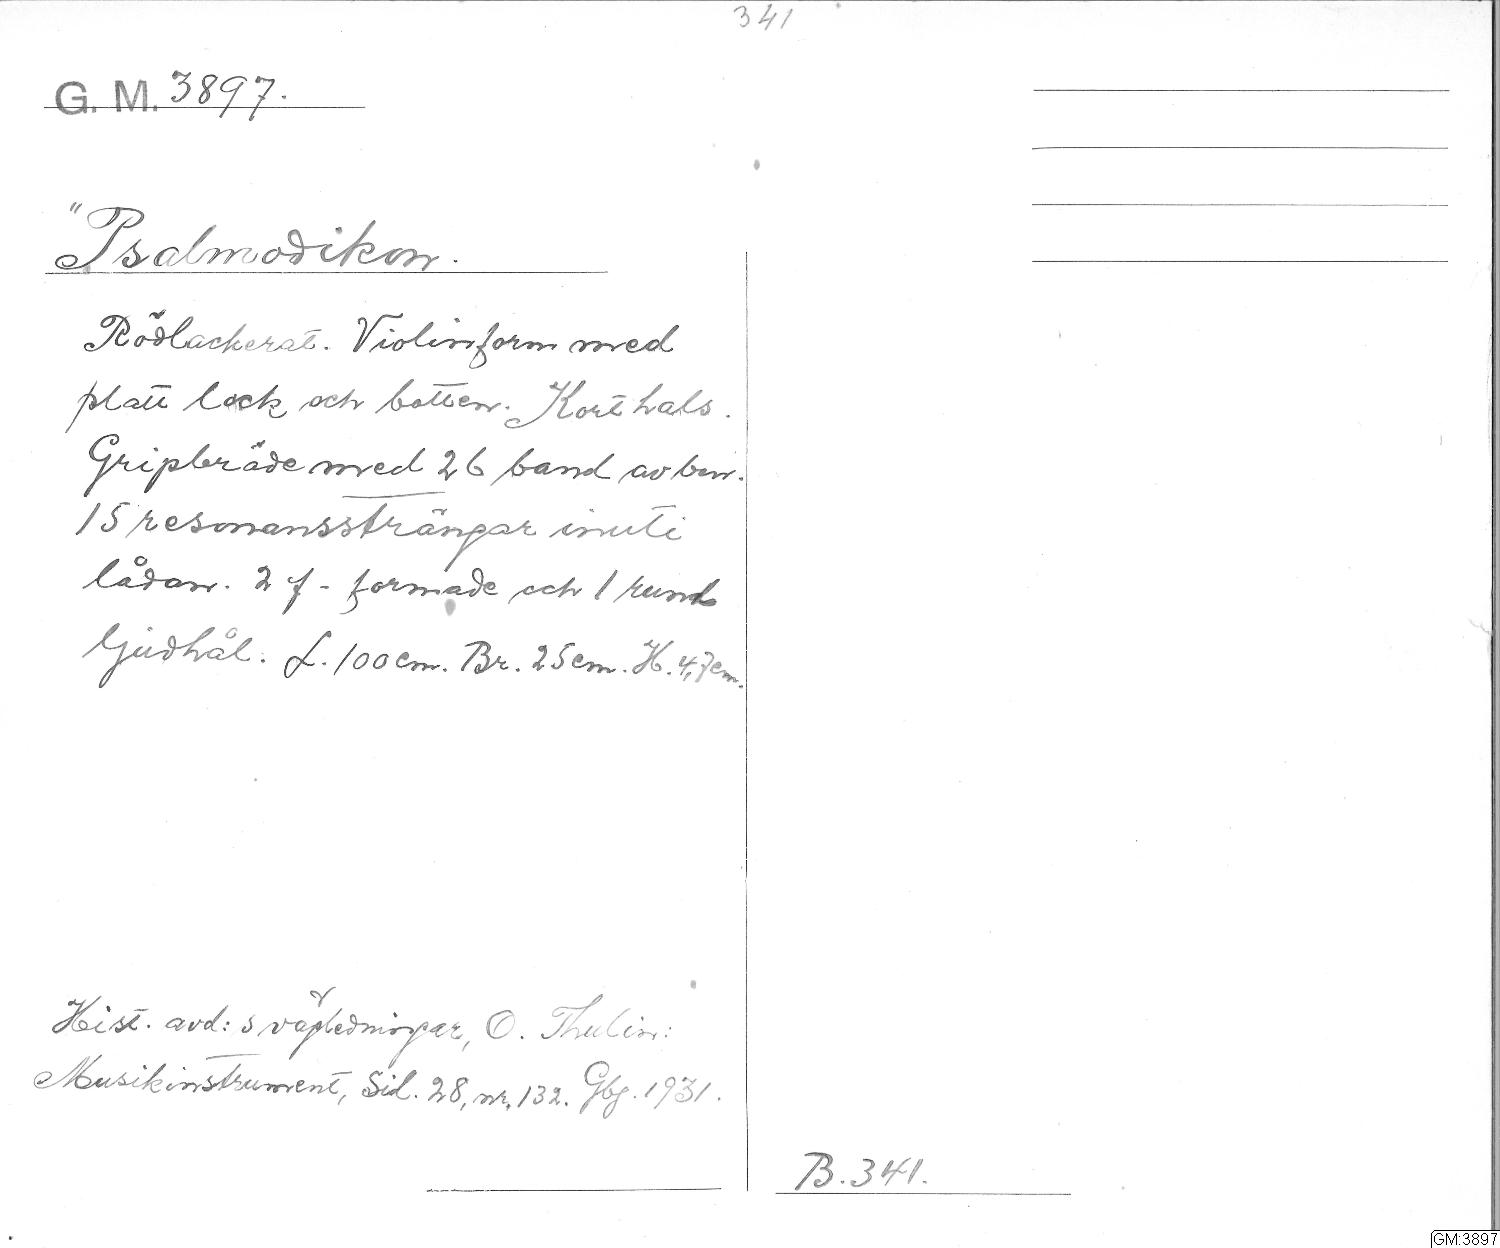 341
G. M. 3897.
"Psalmodikon.
Rödlackerat. Violinform med
platt lock och botten. Kort hals.
Gripbräde med 26 band av ben.
15 resonanssträngar inuti
lådan. 2 f-formade och 1 rund
ljudhål. L. 100 cm. Br. 25 cm. H. 4,7 cm.
Hist. avd:s vägledningar, O. Thulin:
Musikinstrument, Sid. 28, nr. 132. Gbg. 1931.
B. 341.
GM:3897